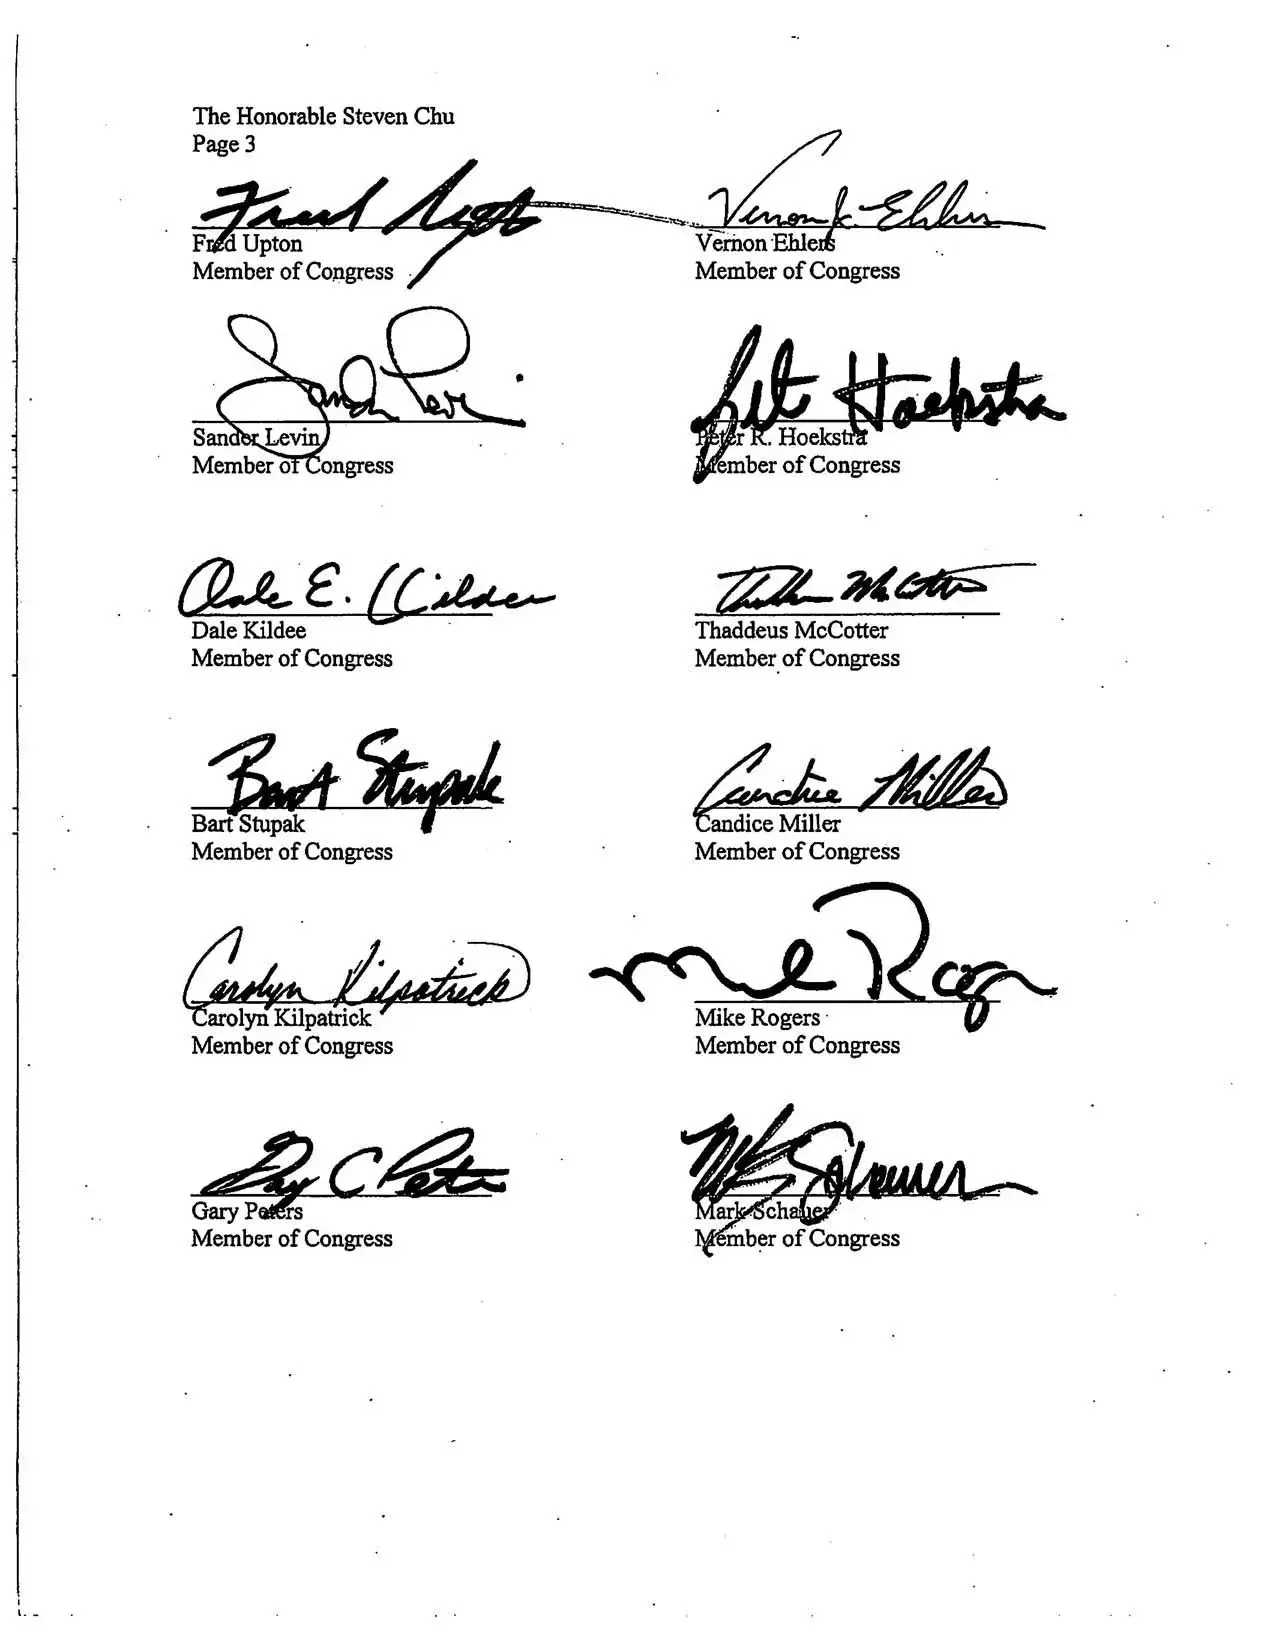 The Honorable Steven Chu
Page 3
Fred Upton
Vernon J. Ehlers
Fred Upton
Vernon Ehlers
Member of Congress
Member of Congress
Sander Levin
Pete Hoekstra
Sander Levin
Peter R. Hoekstra
Member of Congress
Member of Congress
Dale E. Kildee
Thaddeus McCotter
Dale Kildee
Thaddeus McCotter
Member of Congress
Member of Congress
Bart Stupak
Candice Miller
Bart Stupak
Candice Miller
Member of Congress
Member of Congress
Carolyn Kilpatrick
Mike Rogers
Carolyn Kilpatrick
Mike Rogers
Member of Congress
Member of Congress
Gary C Peters
Schauer
Gary Peters
Mark Schauer
Member of Congress
Member of Congress